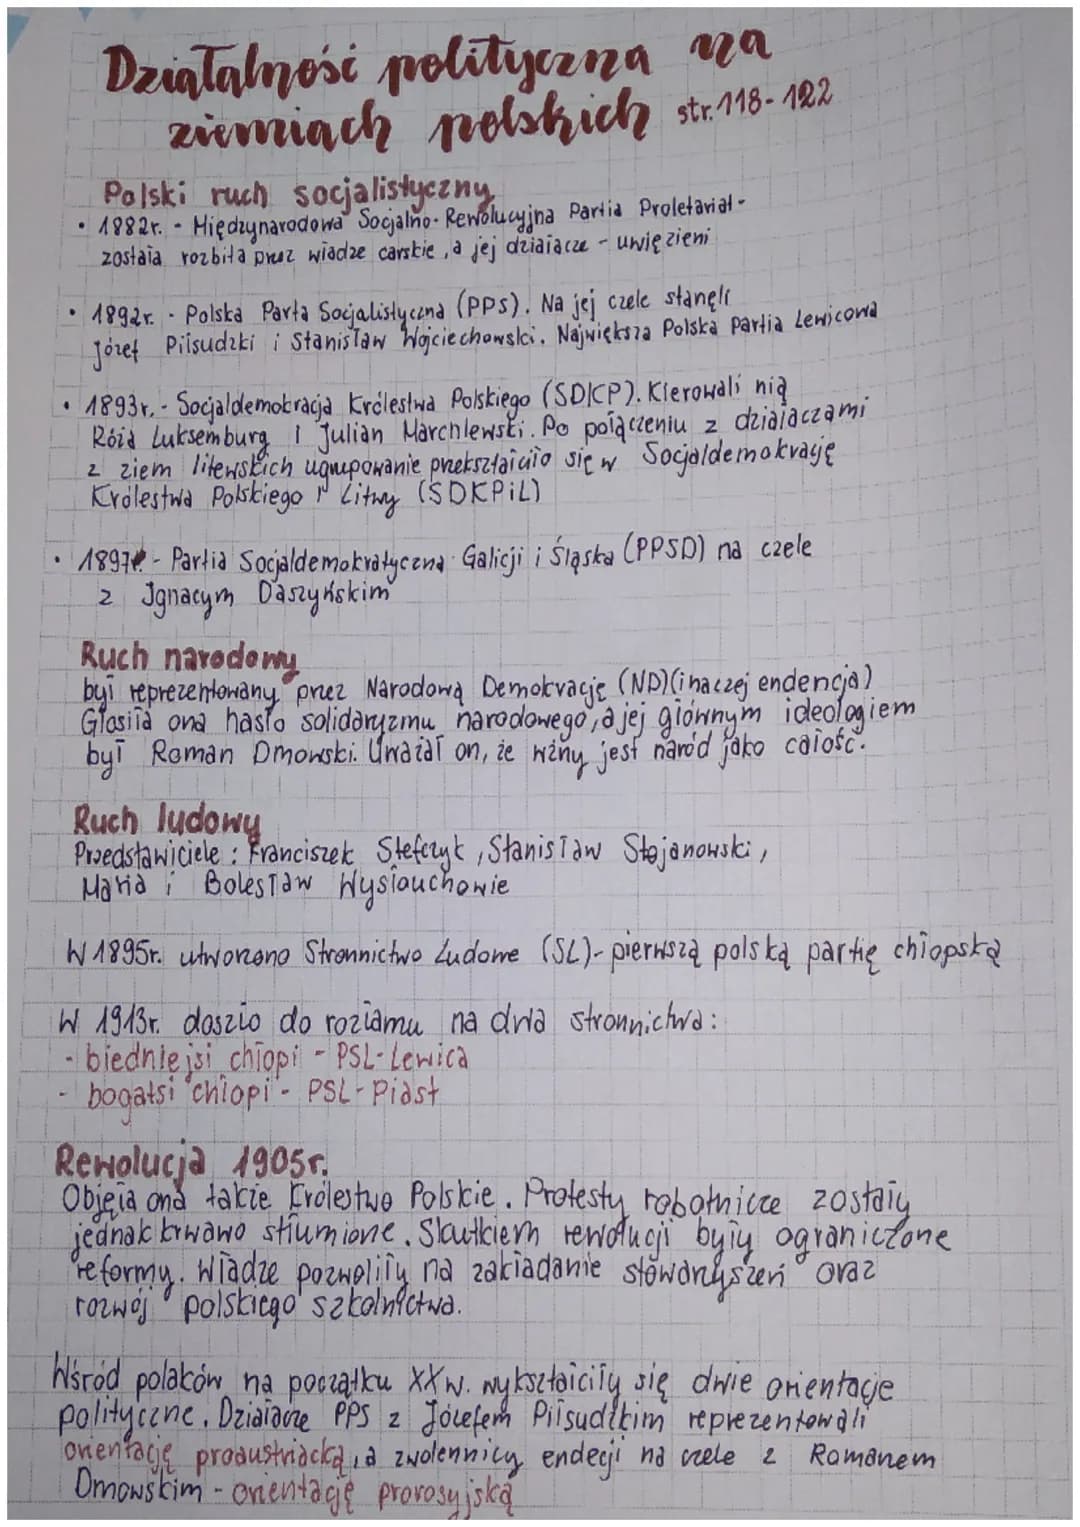 Działalność polityczna na
ziemiach polskich str. 118-122
Polski ruch socjalistyczny
• 1882r. - Międzynarodowa Socjalno-Rewolucyjna Partia Proletariat -
została rozbita przez władze carskie, a jej działacze - uwięzieni
• 1892r. - Polska Parta Socjalistyczna (PPS). Na jej czele stanęli
Józef Piłsudzki i Stanisław Wojciechowski. Największa Polska partia Lewicowa
• 1893r. - Socjaldemokracja Królestwa Polskiego (SDKP). Kierowali nią
Róża Luksemburg i Julian Marchlewski. Po połączeniu z działaczami
z ziem litewskich ugrupowanie przekształciło się w Socjaldemokrację
Królestwa Polskiego i Litwy (SDKPiL)
• 1897r. - Partia Socjaldemokratyczna Galicji i Śląska (PPSD) na czele
z Ignacym Daszyńskim
Ruch narodowy
był reprezentowany przez Narodową Demokrację (ND)(inaczej endencja)
Głosiła ona hasło solidaryzmu narodowego, a jej głównym ideologiem
był Roman Dmowski. Uważał on, że ważny jest naród jako całość.
Ruch ludowy
Przedstawiciele: Franciszek Stefczyk, Stanisław Stojanowski,
Maria i Bolesław Wysłouchowie
W 1895r. utworzono Stronnictwo Ludowe (SL) - pierwszą polską partię chłopską
W 1913r. doszło do rozłamu na dwa stronnictwa:
- biedniejsi chłopi - PSL-Lewica
- bogatsi chłopi - PSL-Piast
Rewolucja 1905r.
Objęła ona także Królestwo Polskie. Protesty robotnicze zostały
jednak krwawo stłumione. Skutkiem rewolucji były ograniczone
reformy. Władze pozwoliły na zakładanie stowarzyszeń oraz
rozwój polskiego szkolnictwa.
Wśród polaków na początku XXw. wykształciły się dwie orientacje
polityczne. Działacze PPS z Józefem Piłsudzkim reprezentowali
orientację proaustriacką, a zwolennicy endecji na czele z Romanem
Dmowskim - orientację prorosyjską